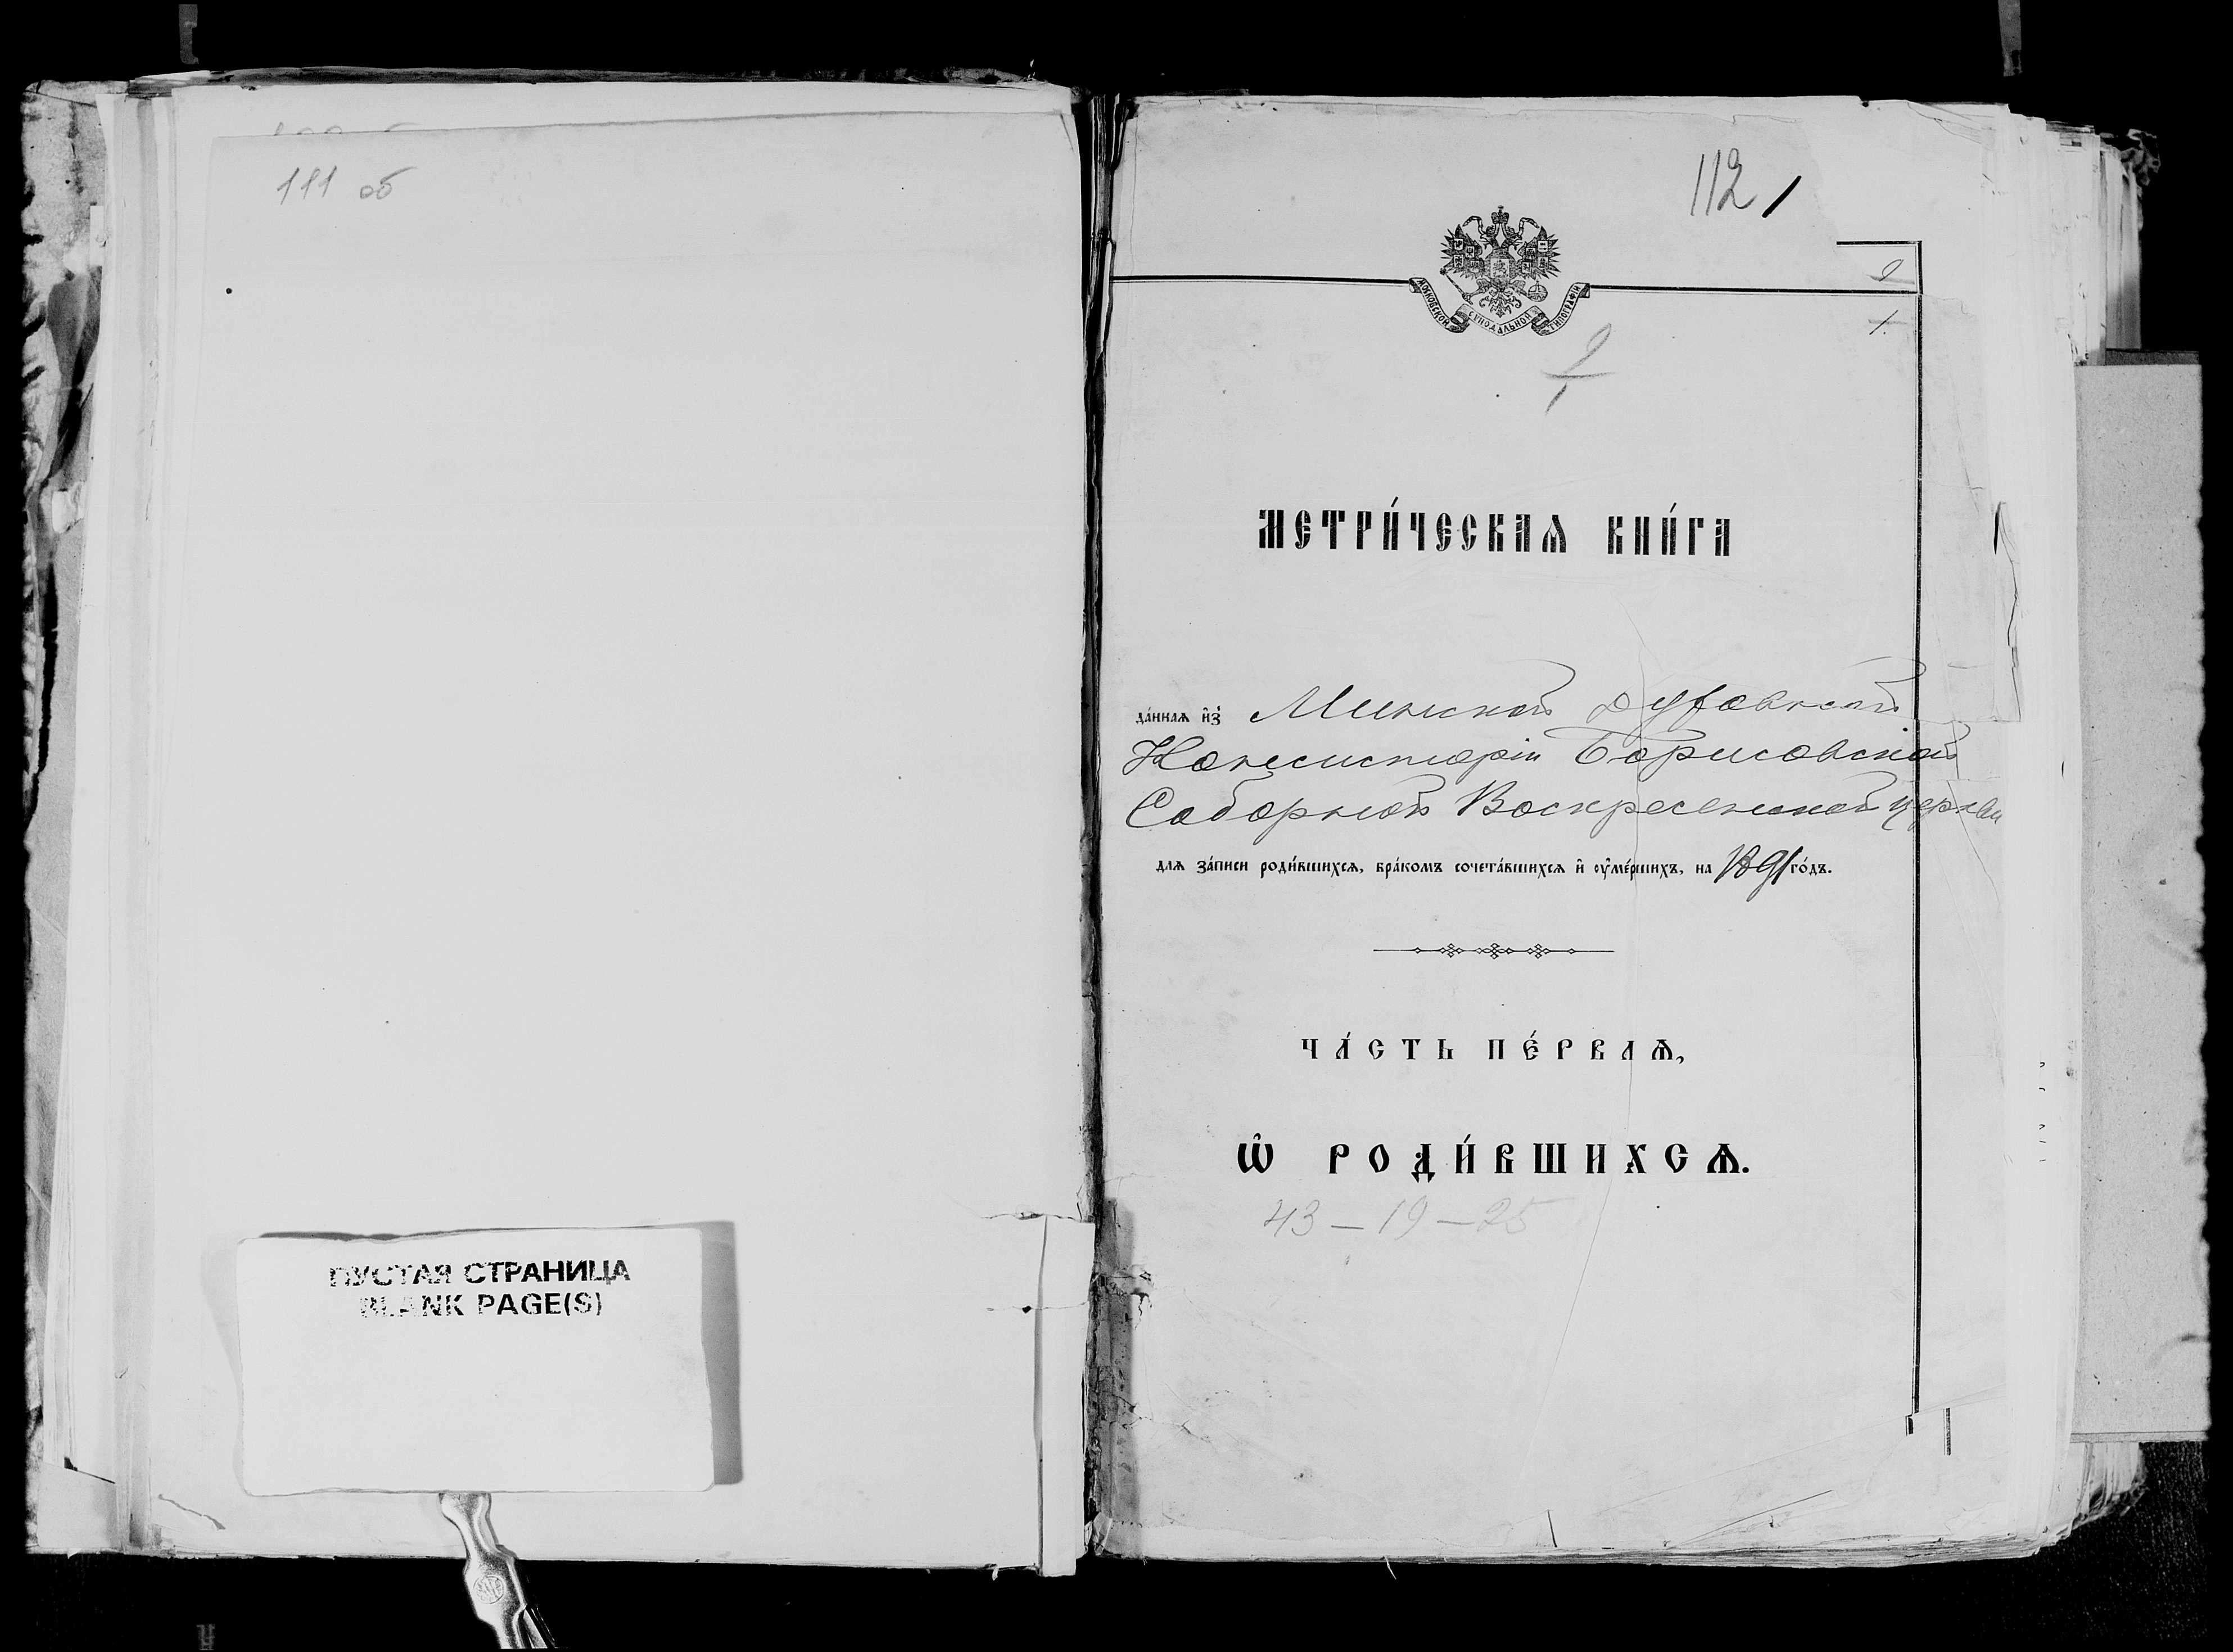 111 об
ПУСТАЯ СТРАНИЦА
BLANK PAGE(S)
112
МОСКОВСКОЙ СѴНОДАЛЬНОЙ ТИПОГРАФІИ
2
1.
2
1
МЕТРИ́ЧЕСКАѦ КНИ́ГА
да́ннаѧ и҆з̾ Минской Духовной
Консисторіи Борисовской
Соборной Воскресенской церкви
длѧ за́писи роди́вшихсѧ, бра́комъ сочета́вшихсѧ и҆ ᲂу҆ме́ршихъ, на 1891 го́дъ.
ЧА́СТЬ ПЕ́РВАѦ,
Ѡ҆ РОДИ́ВШИХСѦ.
43 – 19 – 25